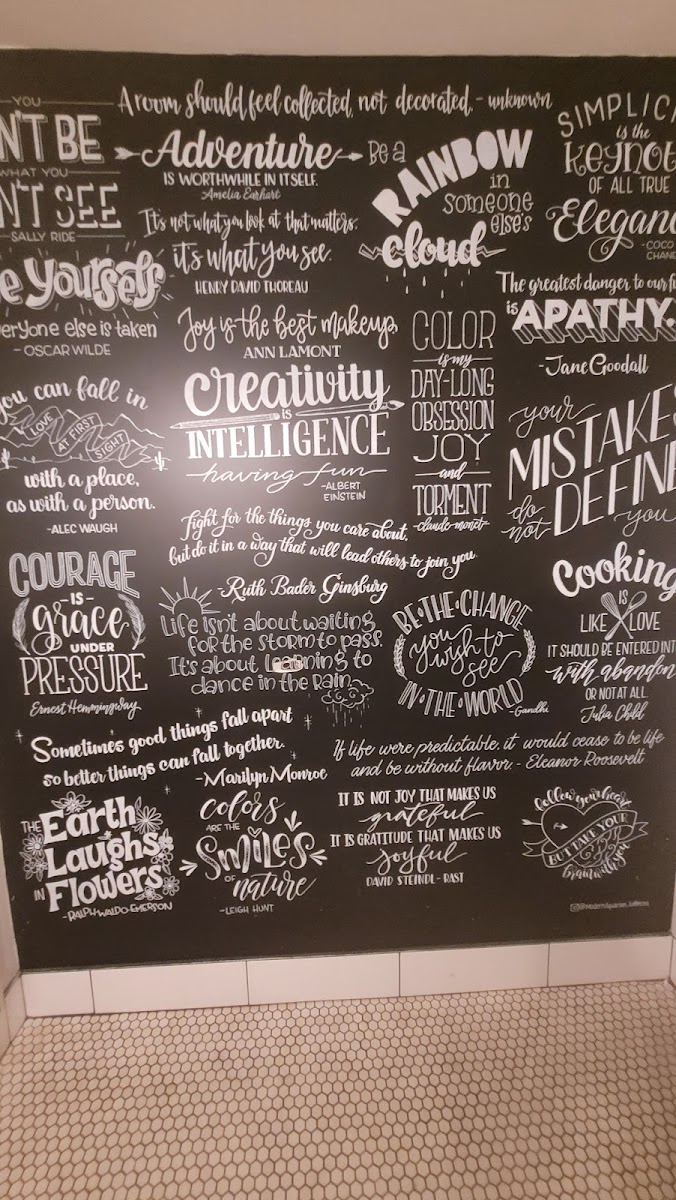 YOU
N'T BE
WHAT YOU
N'T SEE
SALLY RIDE
A room should feel collected, not decorated. - unknown
Adventure
IS WORTHWHILE IN ITSELF.
Amelia Earhart
Be a
RAINBOW
in
someone
else's
cloud
SIMPLICI
is the
KEYNOT
OF ALL TRUE
Eleganc
-COCO
CHANE
It's not what you look at that matters.
it's what you see.
HENRY DAVID THOREAU
e Yourself
eryone else is taken
- OSCAR WILDE
Joy is the best makeup.
ANN LAMONT
The greatest danger to our fu
is APATHY.
-Jane Goodall
COLOR
is my
DAY-LONG
OBSESSION
JOY
and
TORMENT
claude monet
creativity
IS
INTELLIGENCE
having fun
-ALBERT
EINSTEIN
you can fall in
LOVE
AT FIRST
SIGHT
with a place,
as with a person.
-ALEC WAUGH
your
MISTAKES
do
not
DEFINE
you
fight for the things you care about.
but do it in a way that will lead others to join you
-Ruth Bader Ginsburg
COURAGE
-IS-
grace
UNDER
PRESSURE
Ernest Hemmingway
Life isn't about waiting
for the storm to pass.
It's about learning to
dance in the rain
BE·THE·CHANGE
you
wish to
see
IN·THE·WORLD
-Gandhi
Cooking
IS
LIKE LOVE
IT SHOULD BE ENTERED INT
with abandon
OR NOT AT ALL.
Julia Child
Sometimes good things fall apart
so better things can fall together.
-Marilyn Monroe
If life were predictable, it would cease to be life
and be without flavor. - Eleanor Roosevelt
THE Earth
Laughs
IN Flowers
-RALPH WALDO EMERSON
colors
ARE THE
SMILES
OF
nature
-LEIGH HUNT
IT IS NOT JOY THAT MAKES US
grateful
IT IS GRATITUDE THAT MAKES US
joyful
DAVID STEINDL-RAST
follow your heart
BUT TAKE YOUR
brain with you